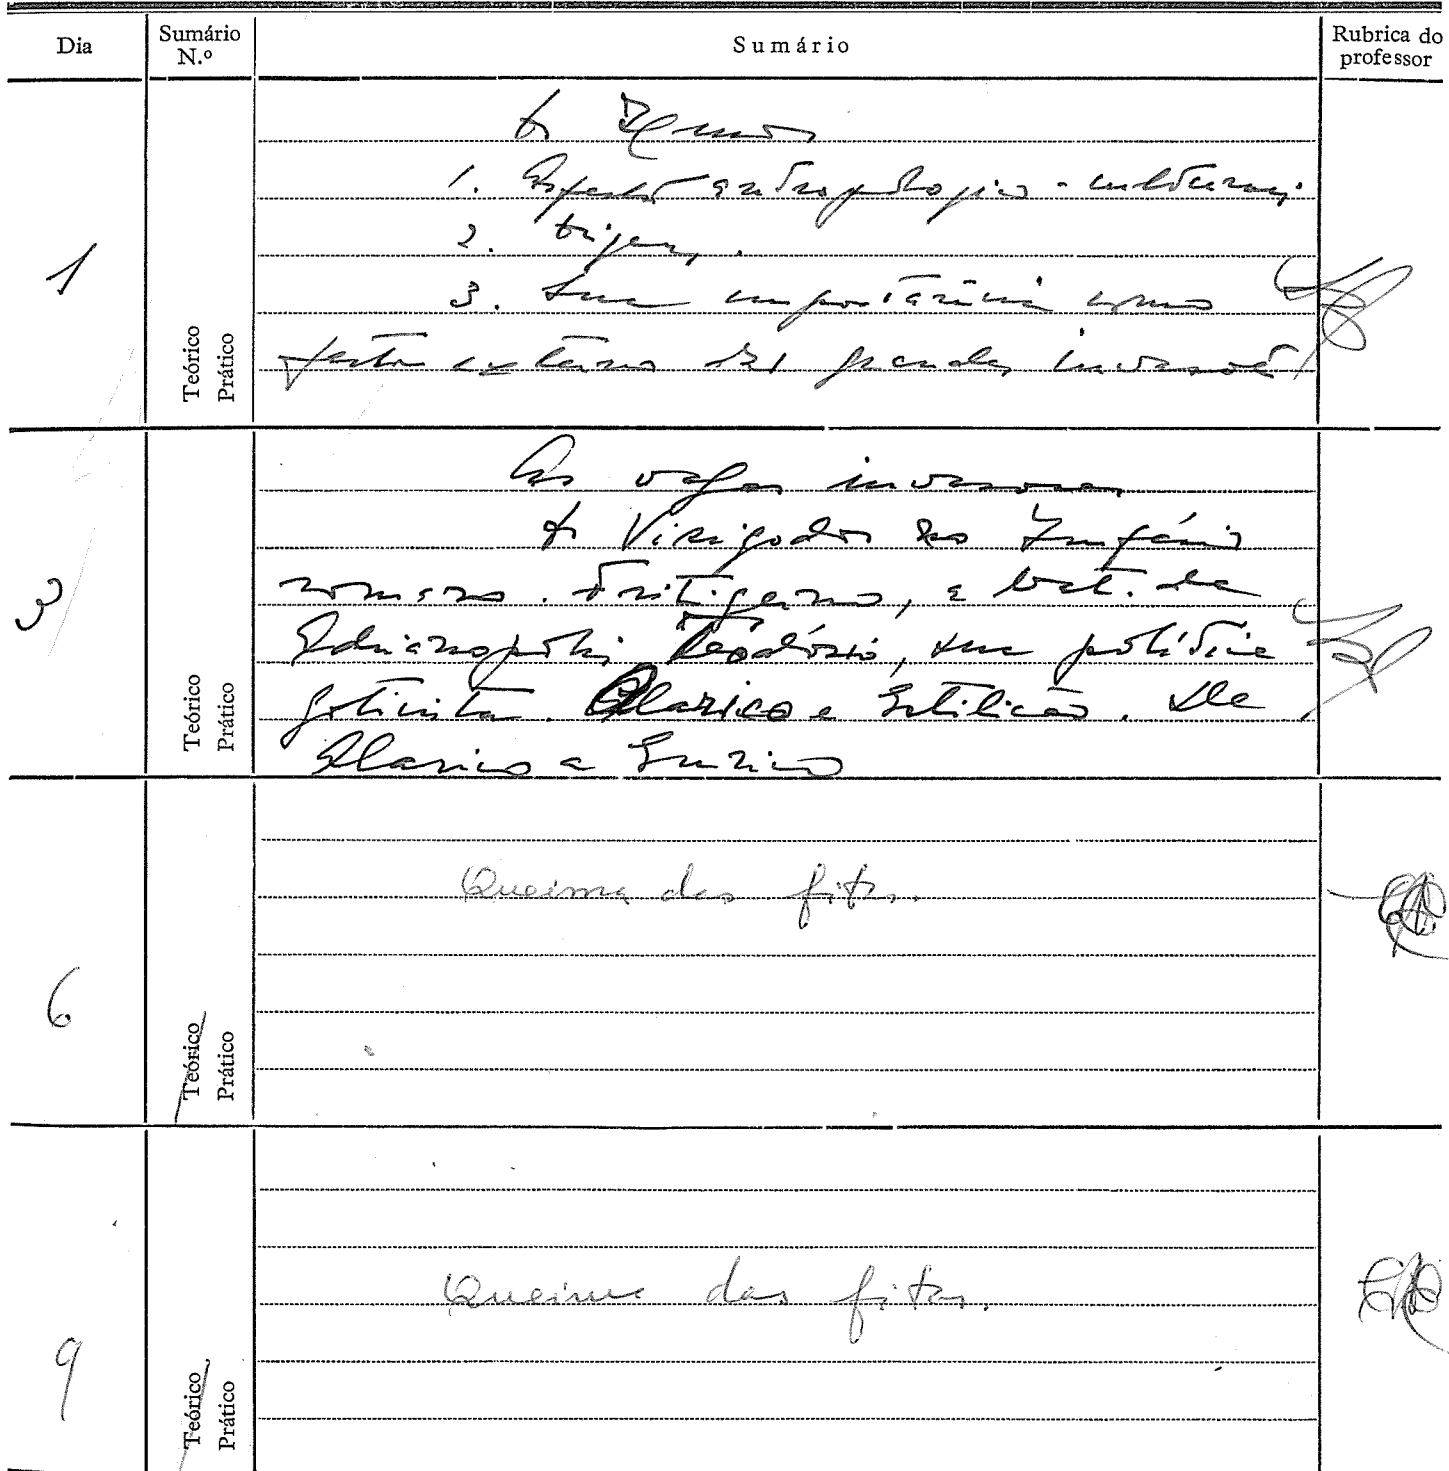 Dia
Sumário N.º
Sumário
Rubrica do professor
1
Teórico
Prático
Os Hunos
1. Aspecto antropologico-cultural
2. Origem.
3. Sua importância como
factor externo das grandes invasões
3
Teórico
Prático
As vagas invasoras
Os Visigodos no Império
romano. Fritigerno, a bat. de
Adrianopolis. Teodósio, sua política
goticista. Alarico e Estilicão. De
Alarico a Eurico
6
Teórico
Prático
Queima das fitas.
9
Teórico
Prático
Queima das fitas.